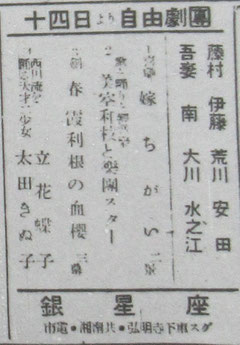 十四日より自由劇團
藤村 伊藤 荒川 安田
吾妻 南 大川 水之江
1 喜劇 嫁ちがい 二景
美室利根と樂團スター
3 春霞利根の血櫻 三景
西川流を
踊る天才二少女
立花蝶子
太田きぬ子
銀星座
市電・湘南共・弘明寺下車スグ